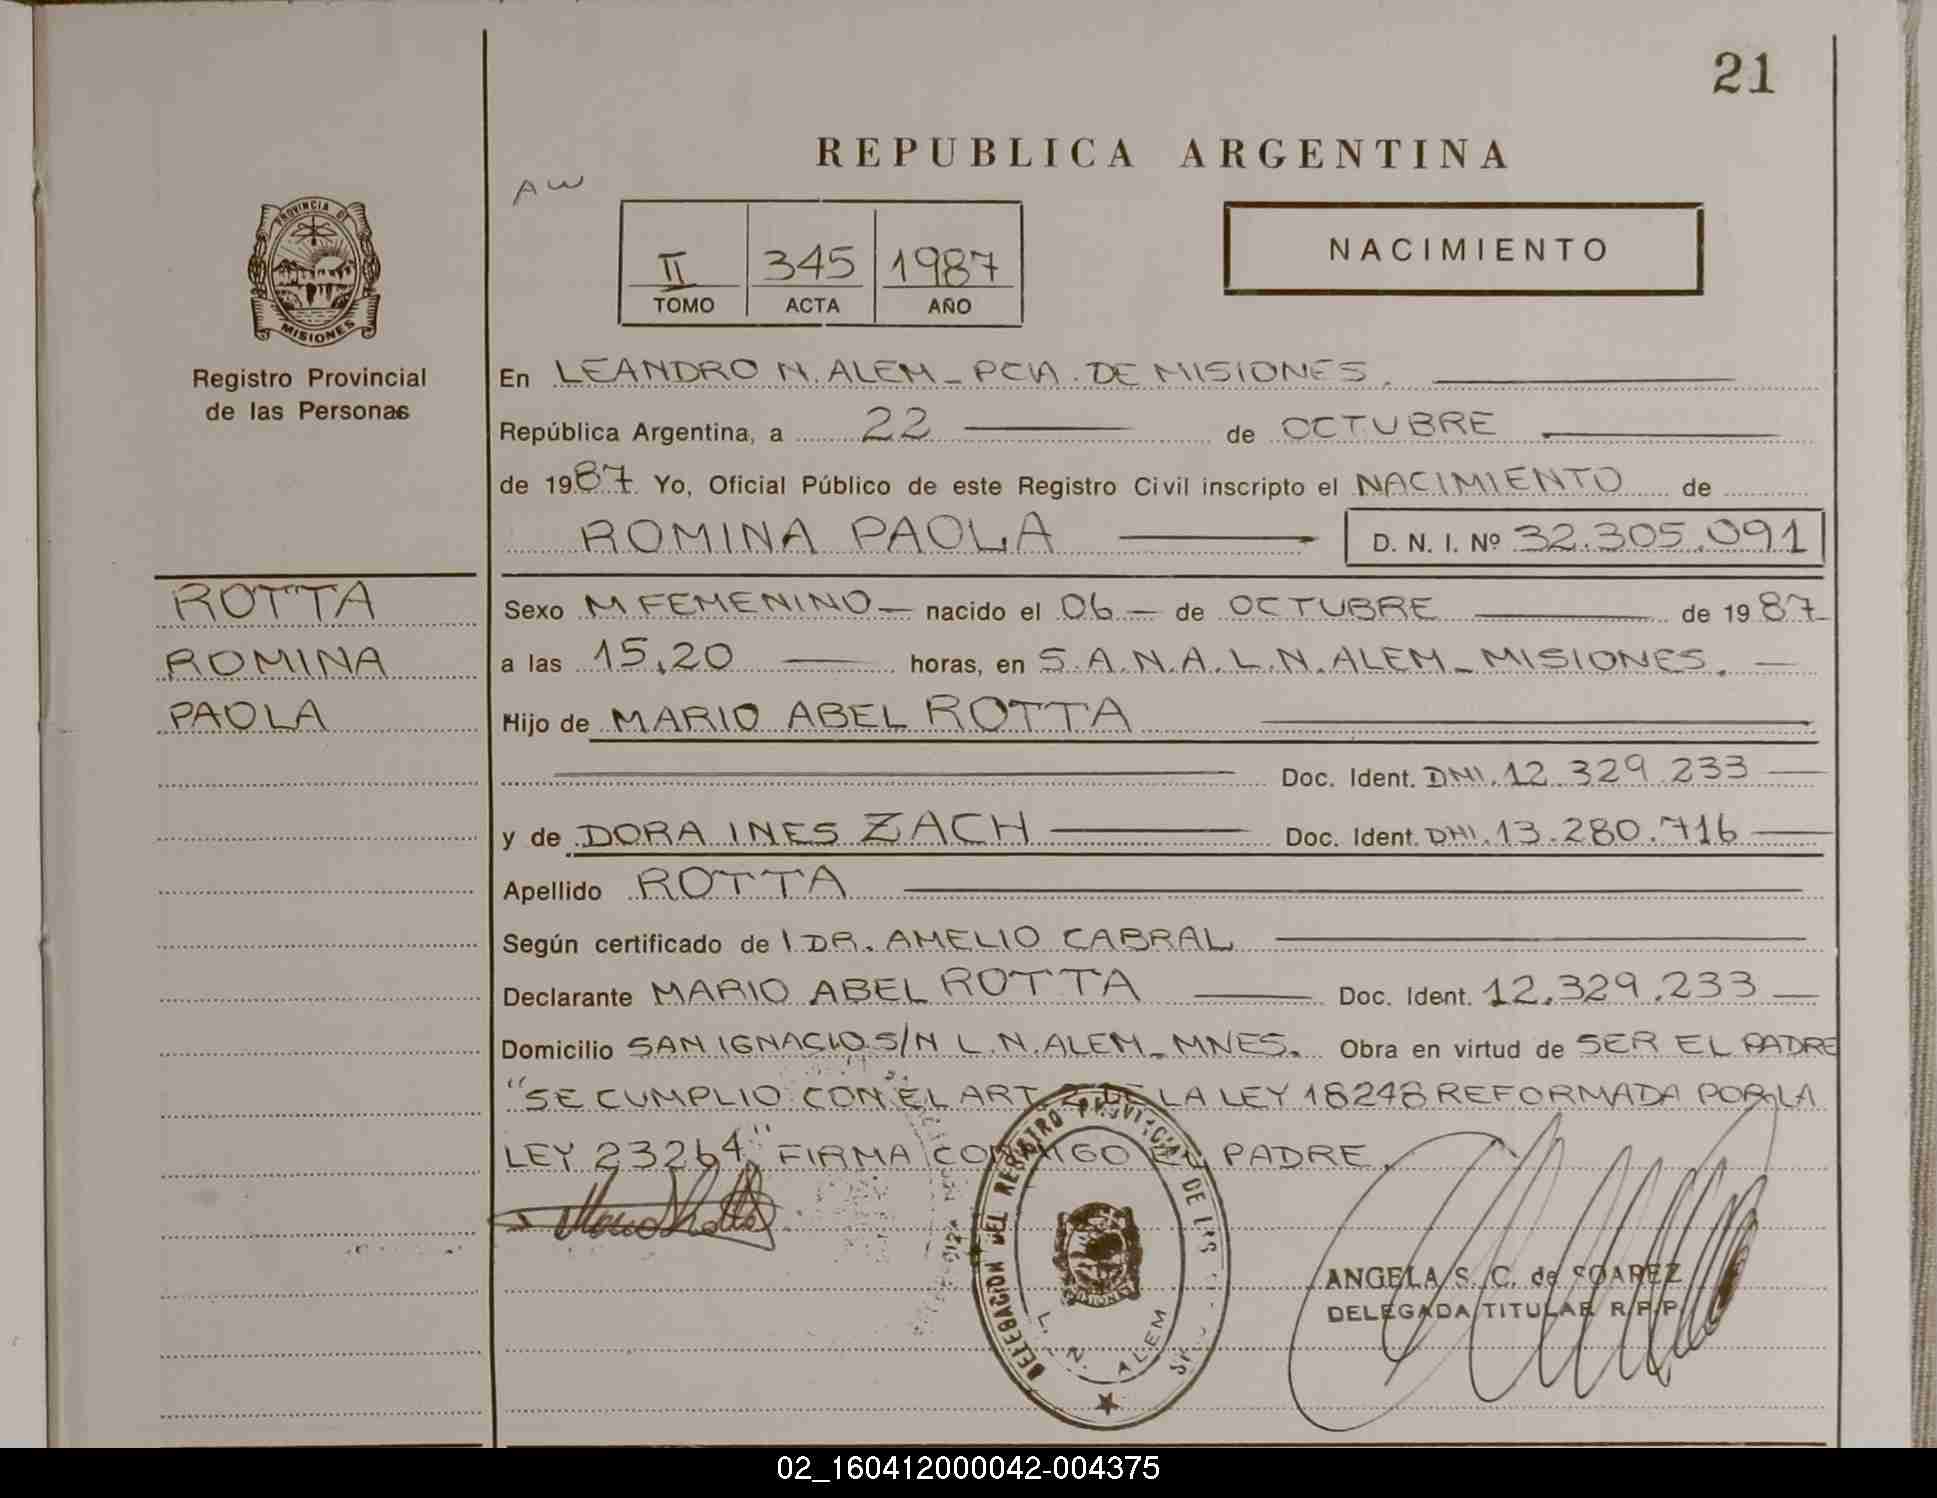 21
REPUBLICA ARGENTINA
AW
PROVINCIA DE
MISIONES
II 345 1987
TOMO ACTA AÑO
NACIMIENTO
Registro Provincial
de las Personas
En LEANDRO N. ALEM - PCIA. DE MISIONES.
República Argentina, a 22 de OCTUBRE
de 1987 Yo, Oficial Público de este Registro Civil inscripto el NACIMIENTO de
ROMINA PAOLA D. N. I. Nº 32.305.091
ROTTA
ROMINA
PAOLA
Sexo M FEMENINO - nacido el 06 - de OCTUBRE de 1987
a las 15,20 horas, en S.A.N.A. L.N. ALEM - MISIONES.
Hijo de MARIO ABEL ROTTA
Doc. Ident. DNI. 12.329.233
y de DORA INES ZACH Doc. Ident. DNI. 13.280.716
Apellido ROTTA
Según certificado de l DR. AMELIO CABRAL
Declarante MARIO ABEL ROTTA Doc. Ident. 12.329.233
Domicilio SAN IGNACIO S/N L.N. ALEM - MNES. Obra en virtud de SER EL PADRE
"SE CUMPLIO CON EL ART. 2 DE LA LEY 18248 REFORMADA POR LA
LEY 23264" FIRMA CONMIGO EL PADRE.
DELEGACION DEL REGISTRO PROVINCIAL DE LAS
L. N. ALEM
MISIONES
ANGELA S. C. de SOAREZ
DELEGADA TITULAR R.P.P.
02_160412000042-004375